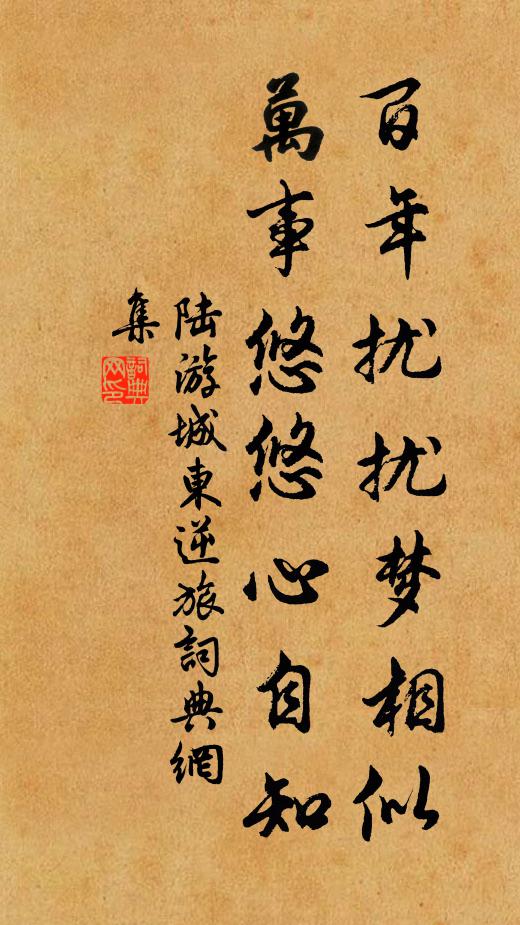 百年扰扰梦相似
萬事悠悠心自知
陆游城東逆旅詞典網
集
詞典
网印